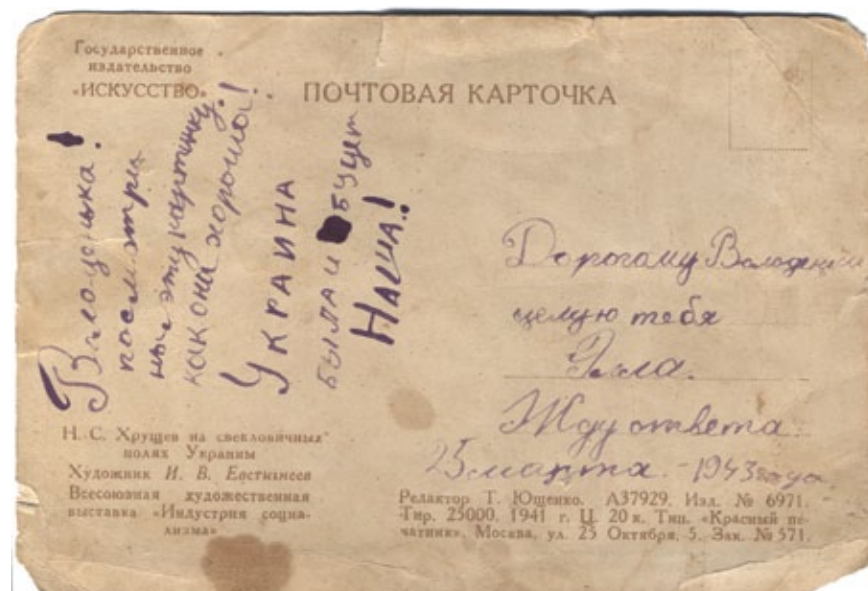 Государственное
издательство
«ИСКУССТВО»
ПОЧТОВАЯ КАРТОЧКА
Володенька!
посматри
на эту картинку.
как она хороша!
УКРАИНА
БЫЛА И БУДЕТ
НАША!
Дорогому Володеньки
целую тебя
Жду ответа.
25 марта - 1943 года
Н. С. Хрущев на свекловичных
полях Украины
Художник И. В. Евстигнеев
Всесоюзная художественная
выставка «Индустрия социа-
лизма»
Редактор Т. Ющенко. А37929. Изд. № 6971.
Тир. 25000. 1941 г. Ц. 20 к. Тип. «Красный пе-
чатник», Москва, ул. 25 Октября, 5. Зак. № 571.